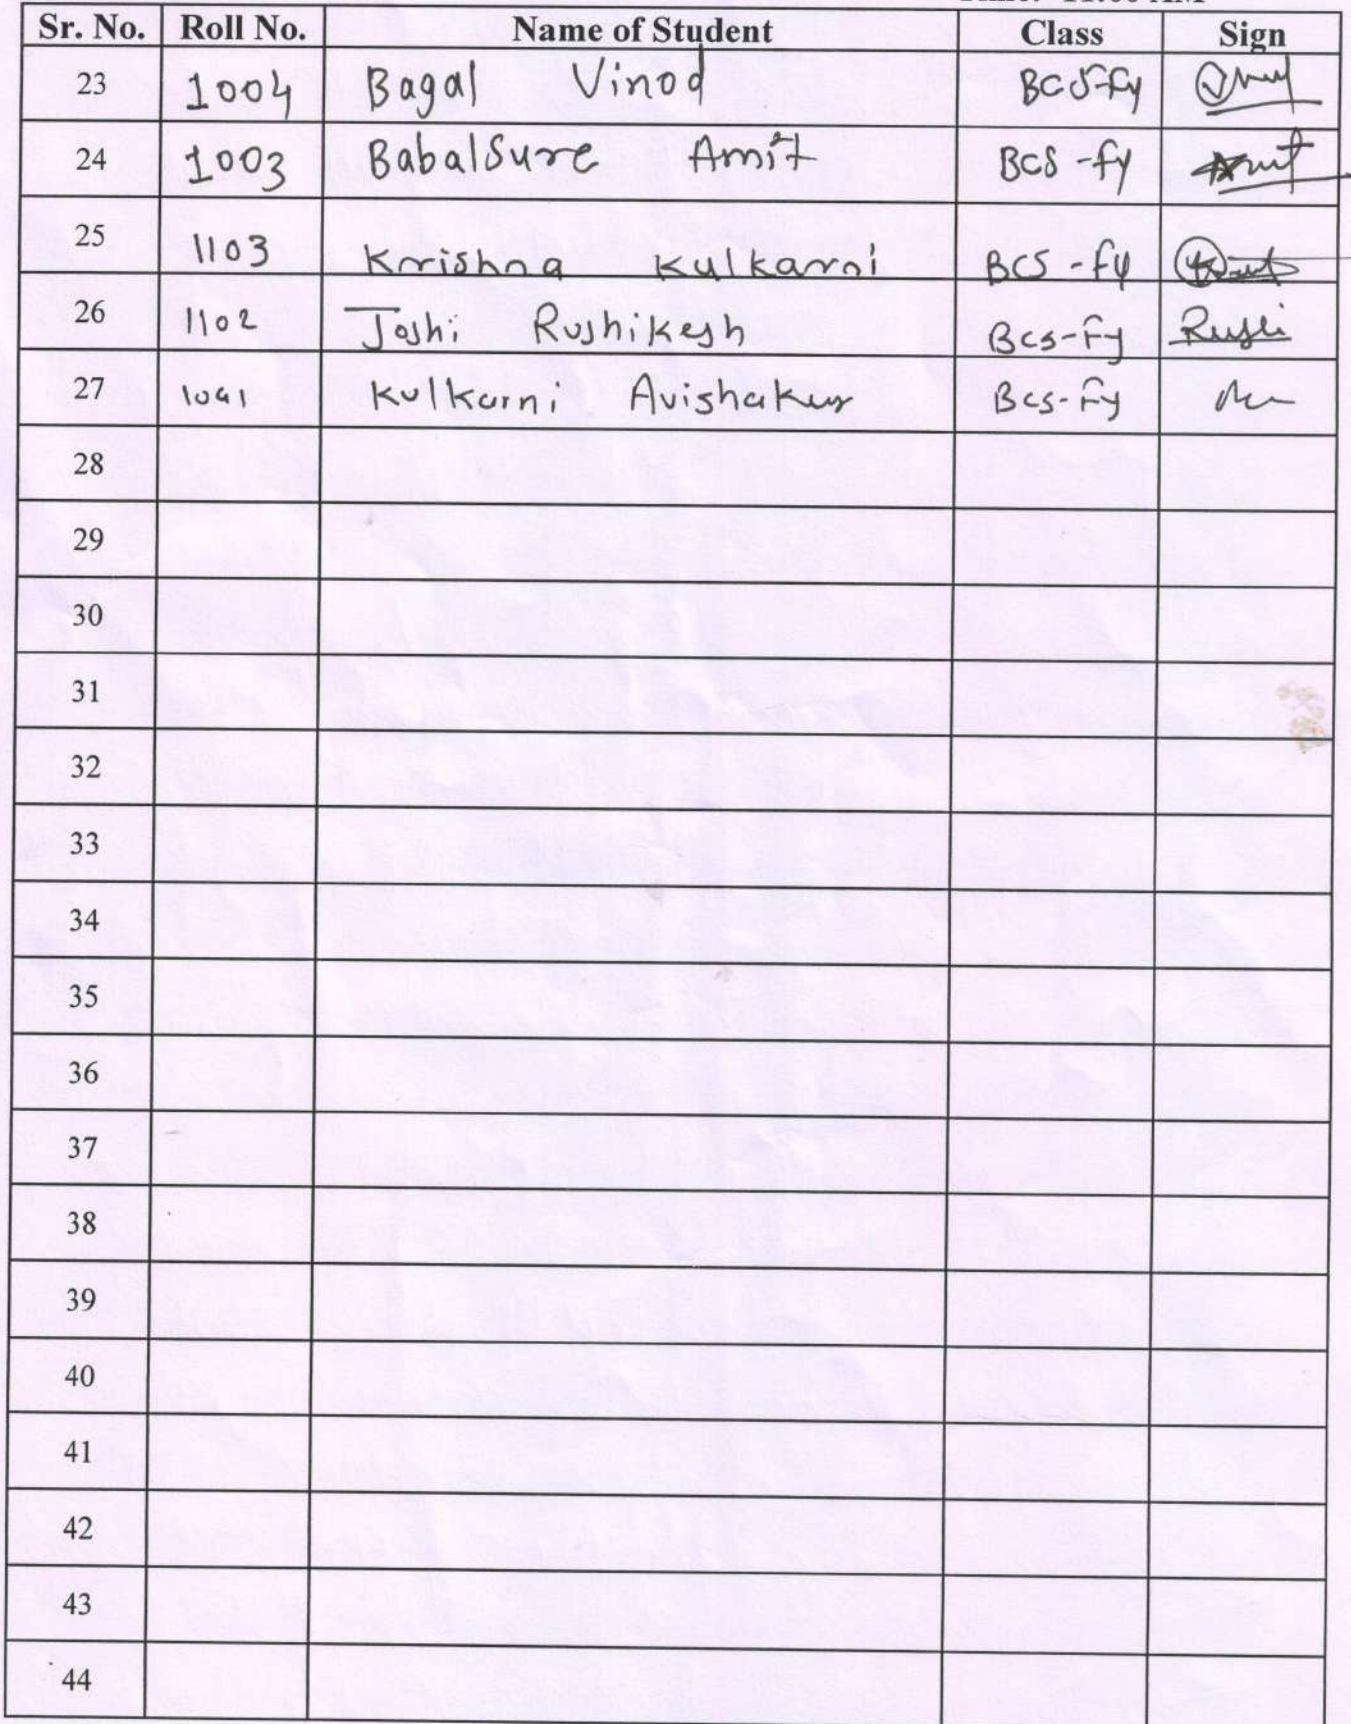 Time: 11:00 AM
Sr. No. Roll No. Name of Student Class Sign
23 1004 Bagal Vinod BCS-Fy
24 1003 BabalSure Amit BCS-fy Amit
25 1103 Krishna Kulkarni BCS-fy
26 1102 Joshi Rushikesh Bcs-Fy Rushi
27 Kulkarni Bcs-Fy
28
29
30
31
32
33
34
35
36
37
38
39
40
41
42
43
44